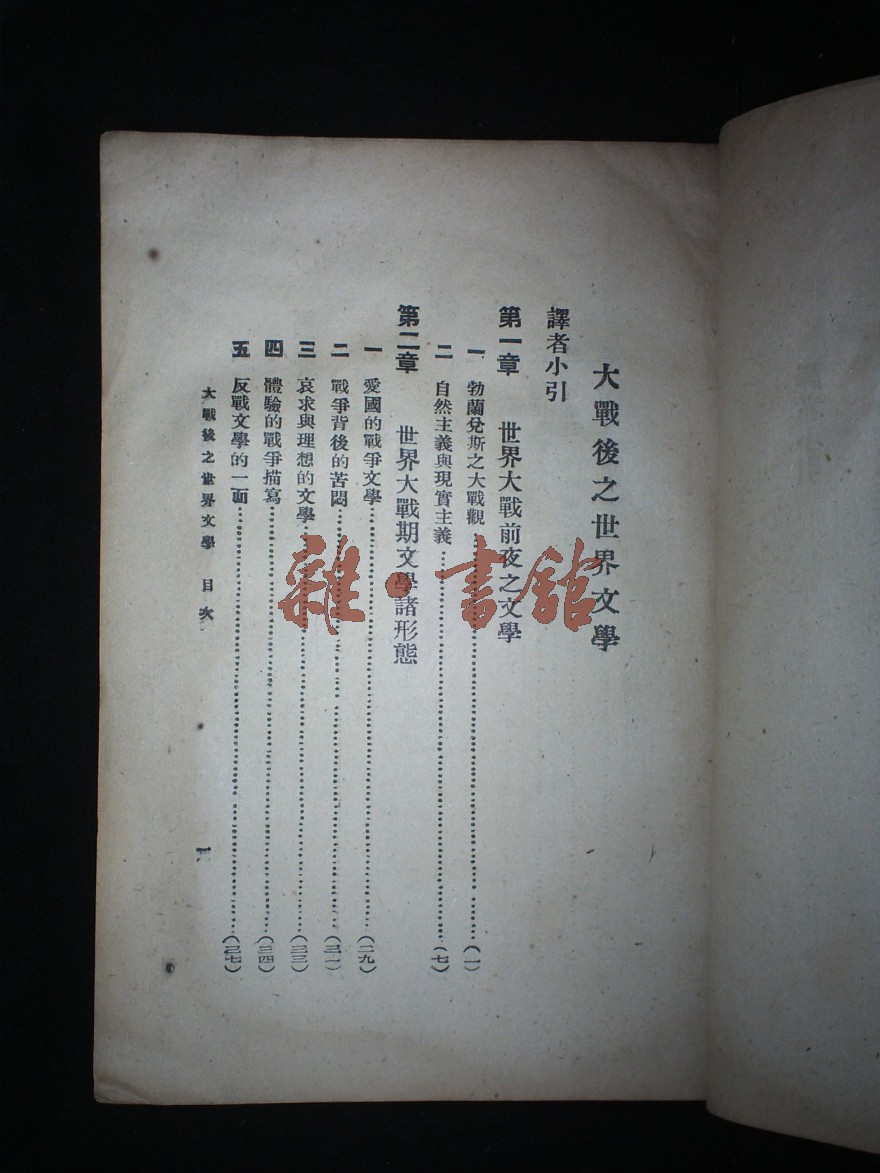 大戰後之世界文學
譯者小引
第一章 世界大戰前夜之文學
一 勃蘭兌斯之大戰觀……(一)
二 自然主義與現實主義……(七)
第二章 世界大戰期文學諸形態
一 愛國的戰爭文學……(二九)
二 戰爭背後的苦悶……(三一)
三 哀求與理想的文學……(三三)
四 體驗的戰爭描寫……(三四)
五 反戰文學的一面……(三七)
大戰後之世界文學 目次
一
雜·書館